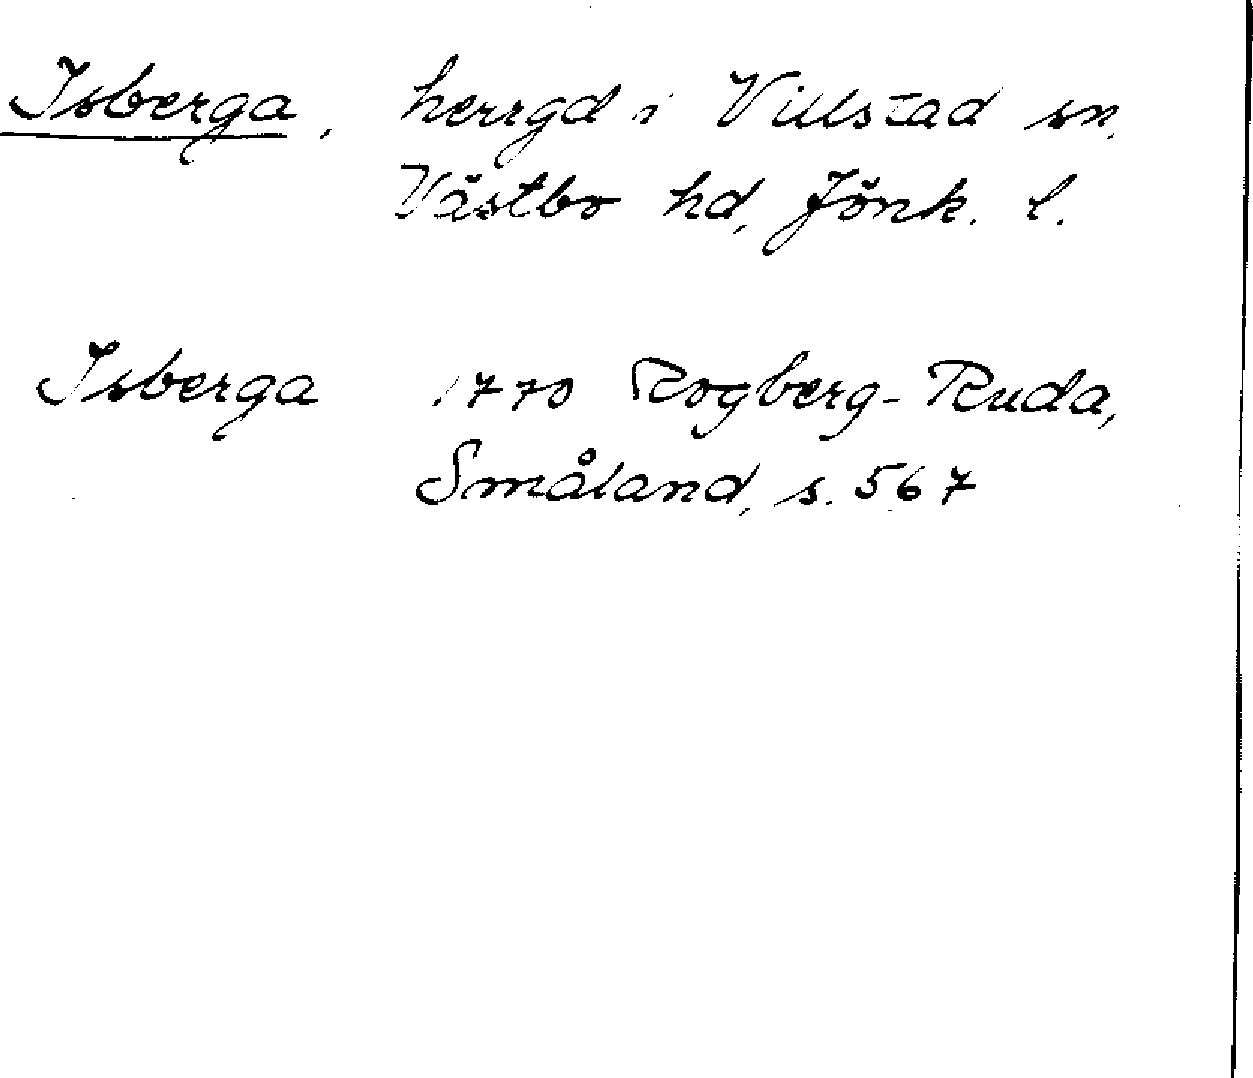 Isberga, herrgd i Villstad sn,
Västbo hd, Jönk. l.
Isberga 1770 Rogberg-Ruda,
Småland, s. 567